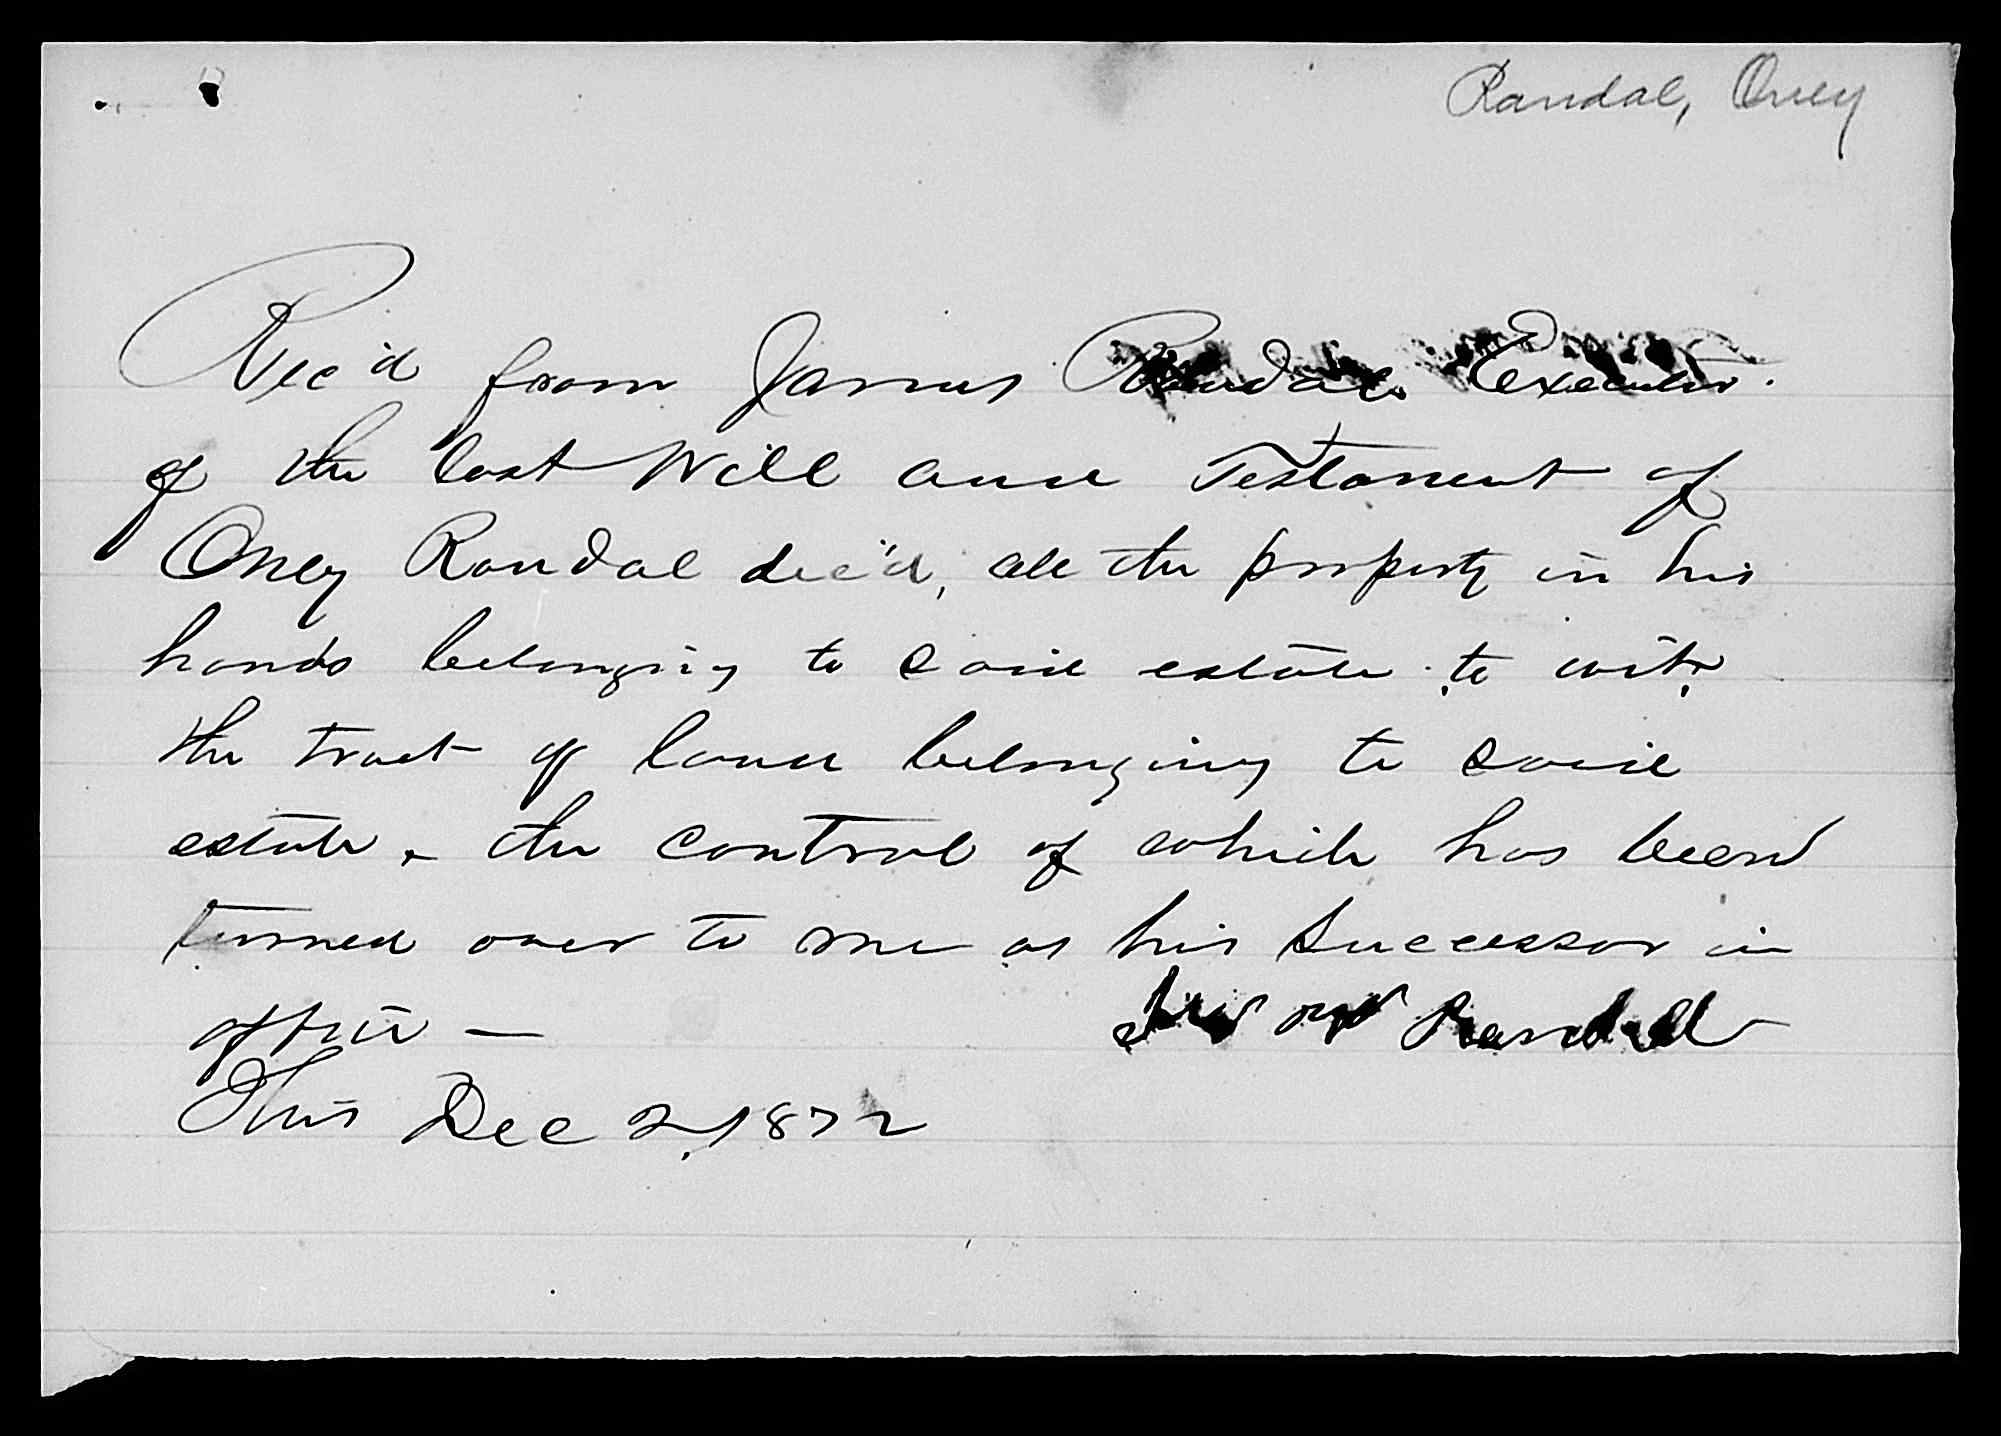 Randal, Oney
Rec'd from James Randal Executor.
of the last Will and Testament of
Oney Randal dec'd, all the property in his
hands belonging to said estate to wit,
the tract of land belonging to said
estate, the control of which has been
turned over to me as his Successor in
office —
Randall
This Dec 2, 1872